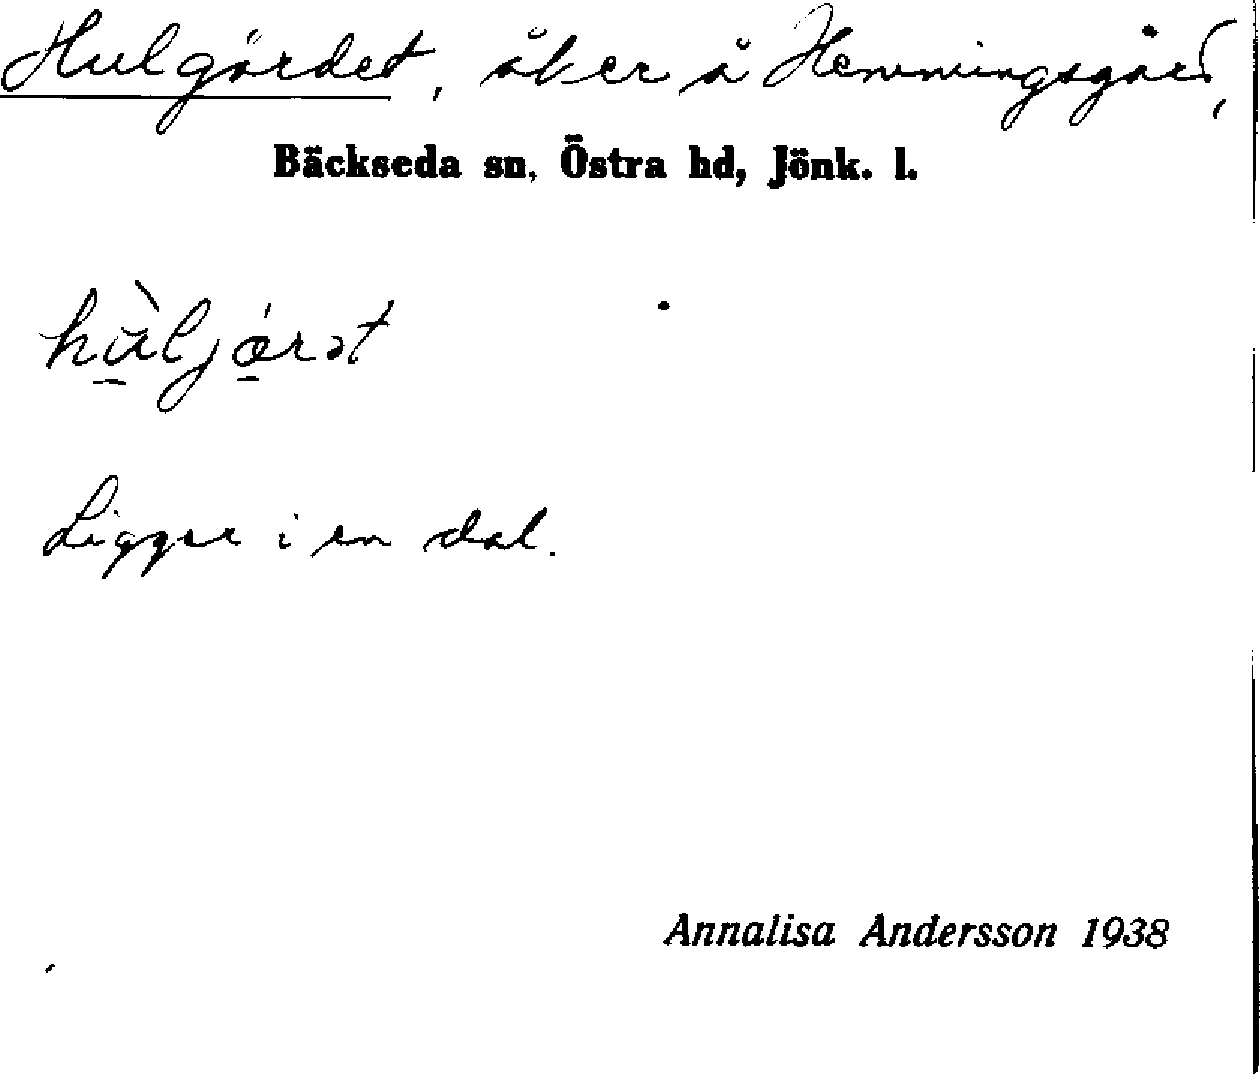 Hulgärdet, åker å Hemmingsgård,
Bäckseda sn, Östra hd, Jönk. l.
Ligger i en dal.
Annalisa Andersson 1938